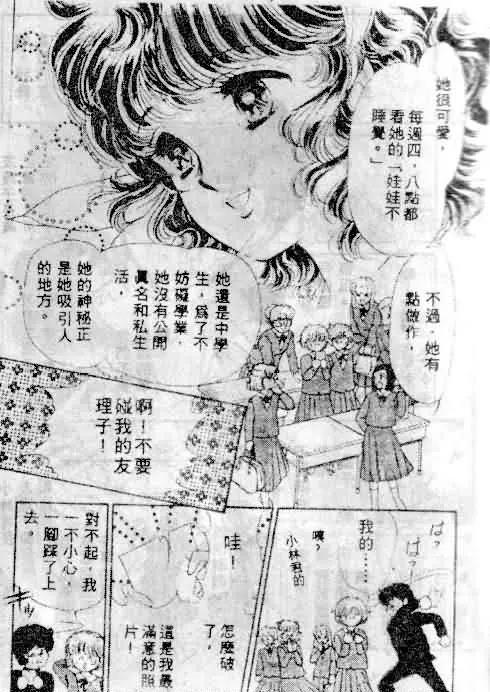 她很可愛，
每週四，八點都
看她的「娃娃不
睡覺。」
不過，她有
點做作，
她還是中學
生，為了不
妨礙學業，
她沒有公開
眞名和私生
活，
她的神秘正
是她吸引人
的地方。
啊！不要
碰我的友
理子！
ぱ？
ぱ？
我的……
嘎？
小林君的
哇！
怎麼破
了，
這是我最
滿意的照
片！
對不起，我
一不小心，
一腳踩了上
去。
キッ